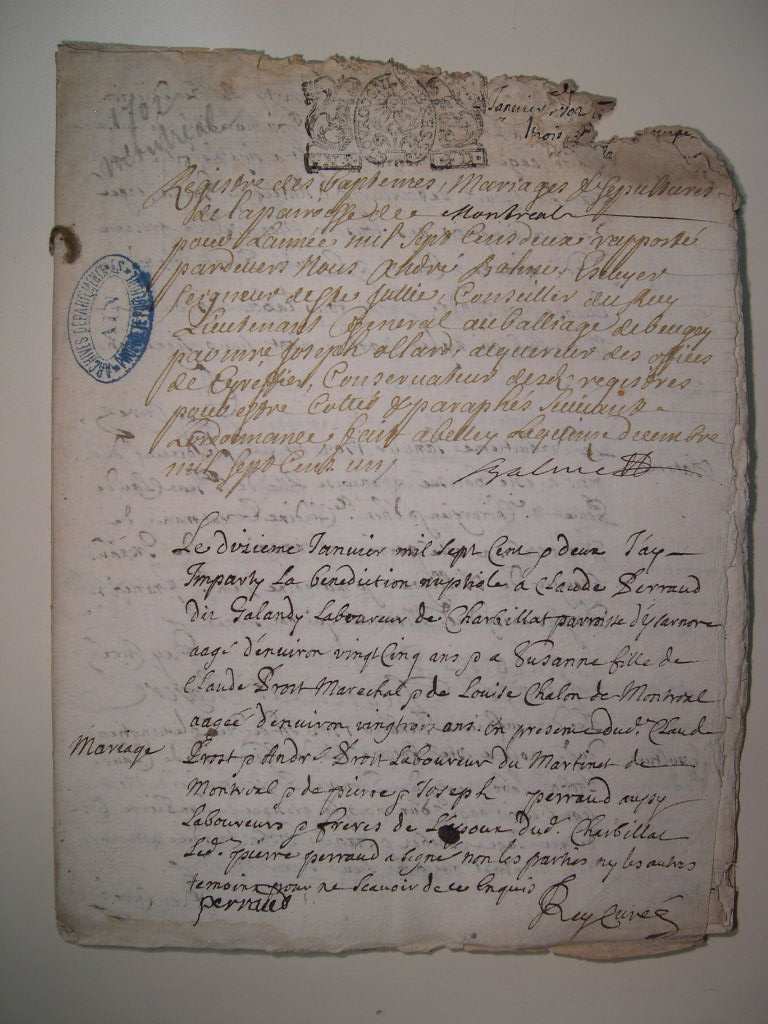 1702
Montreal
Janvier 1702
trois
Registre des baptemes, Mariages & Sepultures
de la parroisse de Montreal
pour L'année mil Sept Cens deux rapporté
pardevers Nous André Balme Escuyer
Seigneur de Ste Jullie, Conseiller du Roy
Lieutenant General au balliage de beugey
par Joseph ollard, acquereur des offices
de Greffier, Conservateur desd. registres
pour estre Cottés & paraphés Suivant
L'ordonnance, fait a belley Le quinze decembre
mil Sept Cent un
Balme
ARCHIVES DEPARTEMENTALES
AIN
Le dixieme Janvier mil Sept Cent p deux J'ay
Imparty La benediction nuptiale a Claude Perraud
dit Galandy Laboureur de Charbillat parroisse d'ysarnore
aagé d'environ vingt Cinq ans p a Susanne fille de
Claude Prost Marechal p de Louise Chalon de Montreal
aagée d'environ vingtrois ans. en presence dud. Claude
Mariage
Prost p André Prost Laboureur du Martinet de
Montreal p de pierre p Joseph perraud aussy
Laboureurs p freres de L'Espoux dud. Charbillat
Led. pierre perraud a signé non les parties ny les autres
temoins pour ne Scavoir de ce Enquis
perraud
Rey Curé